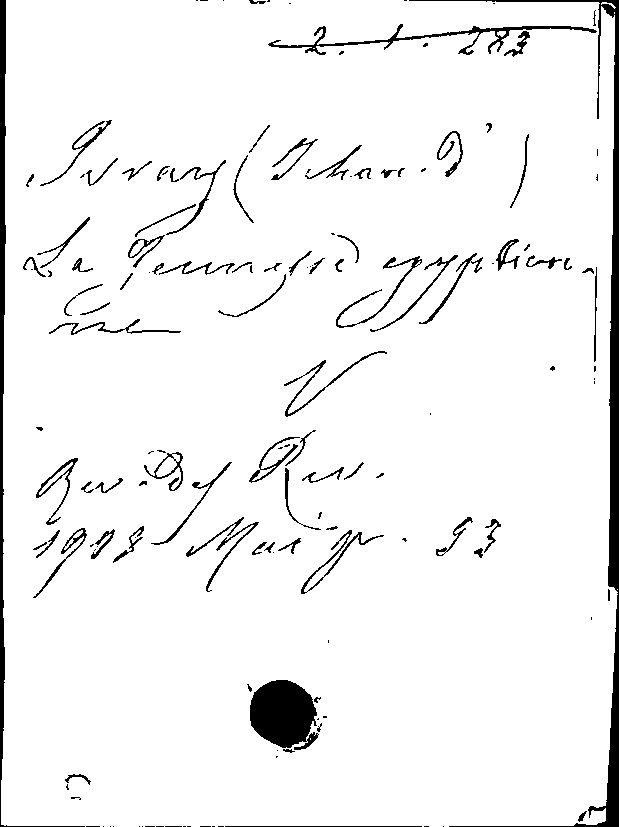 2. 1. 283
Ivray (Jehan. d')
La Jeunesse égyptien-
ne
V
Rev. des Rev.
1908 Mai p. 53